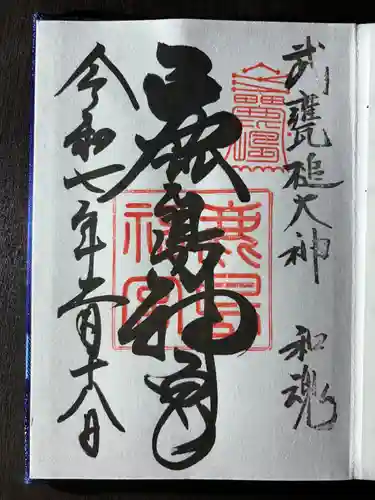 武甕槌大神 和魂
鹿島神宮
令和七年二月十八日
鹿島
神宮